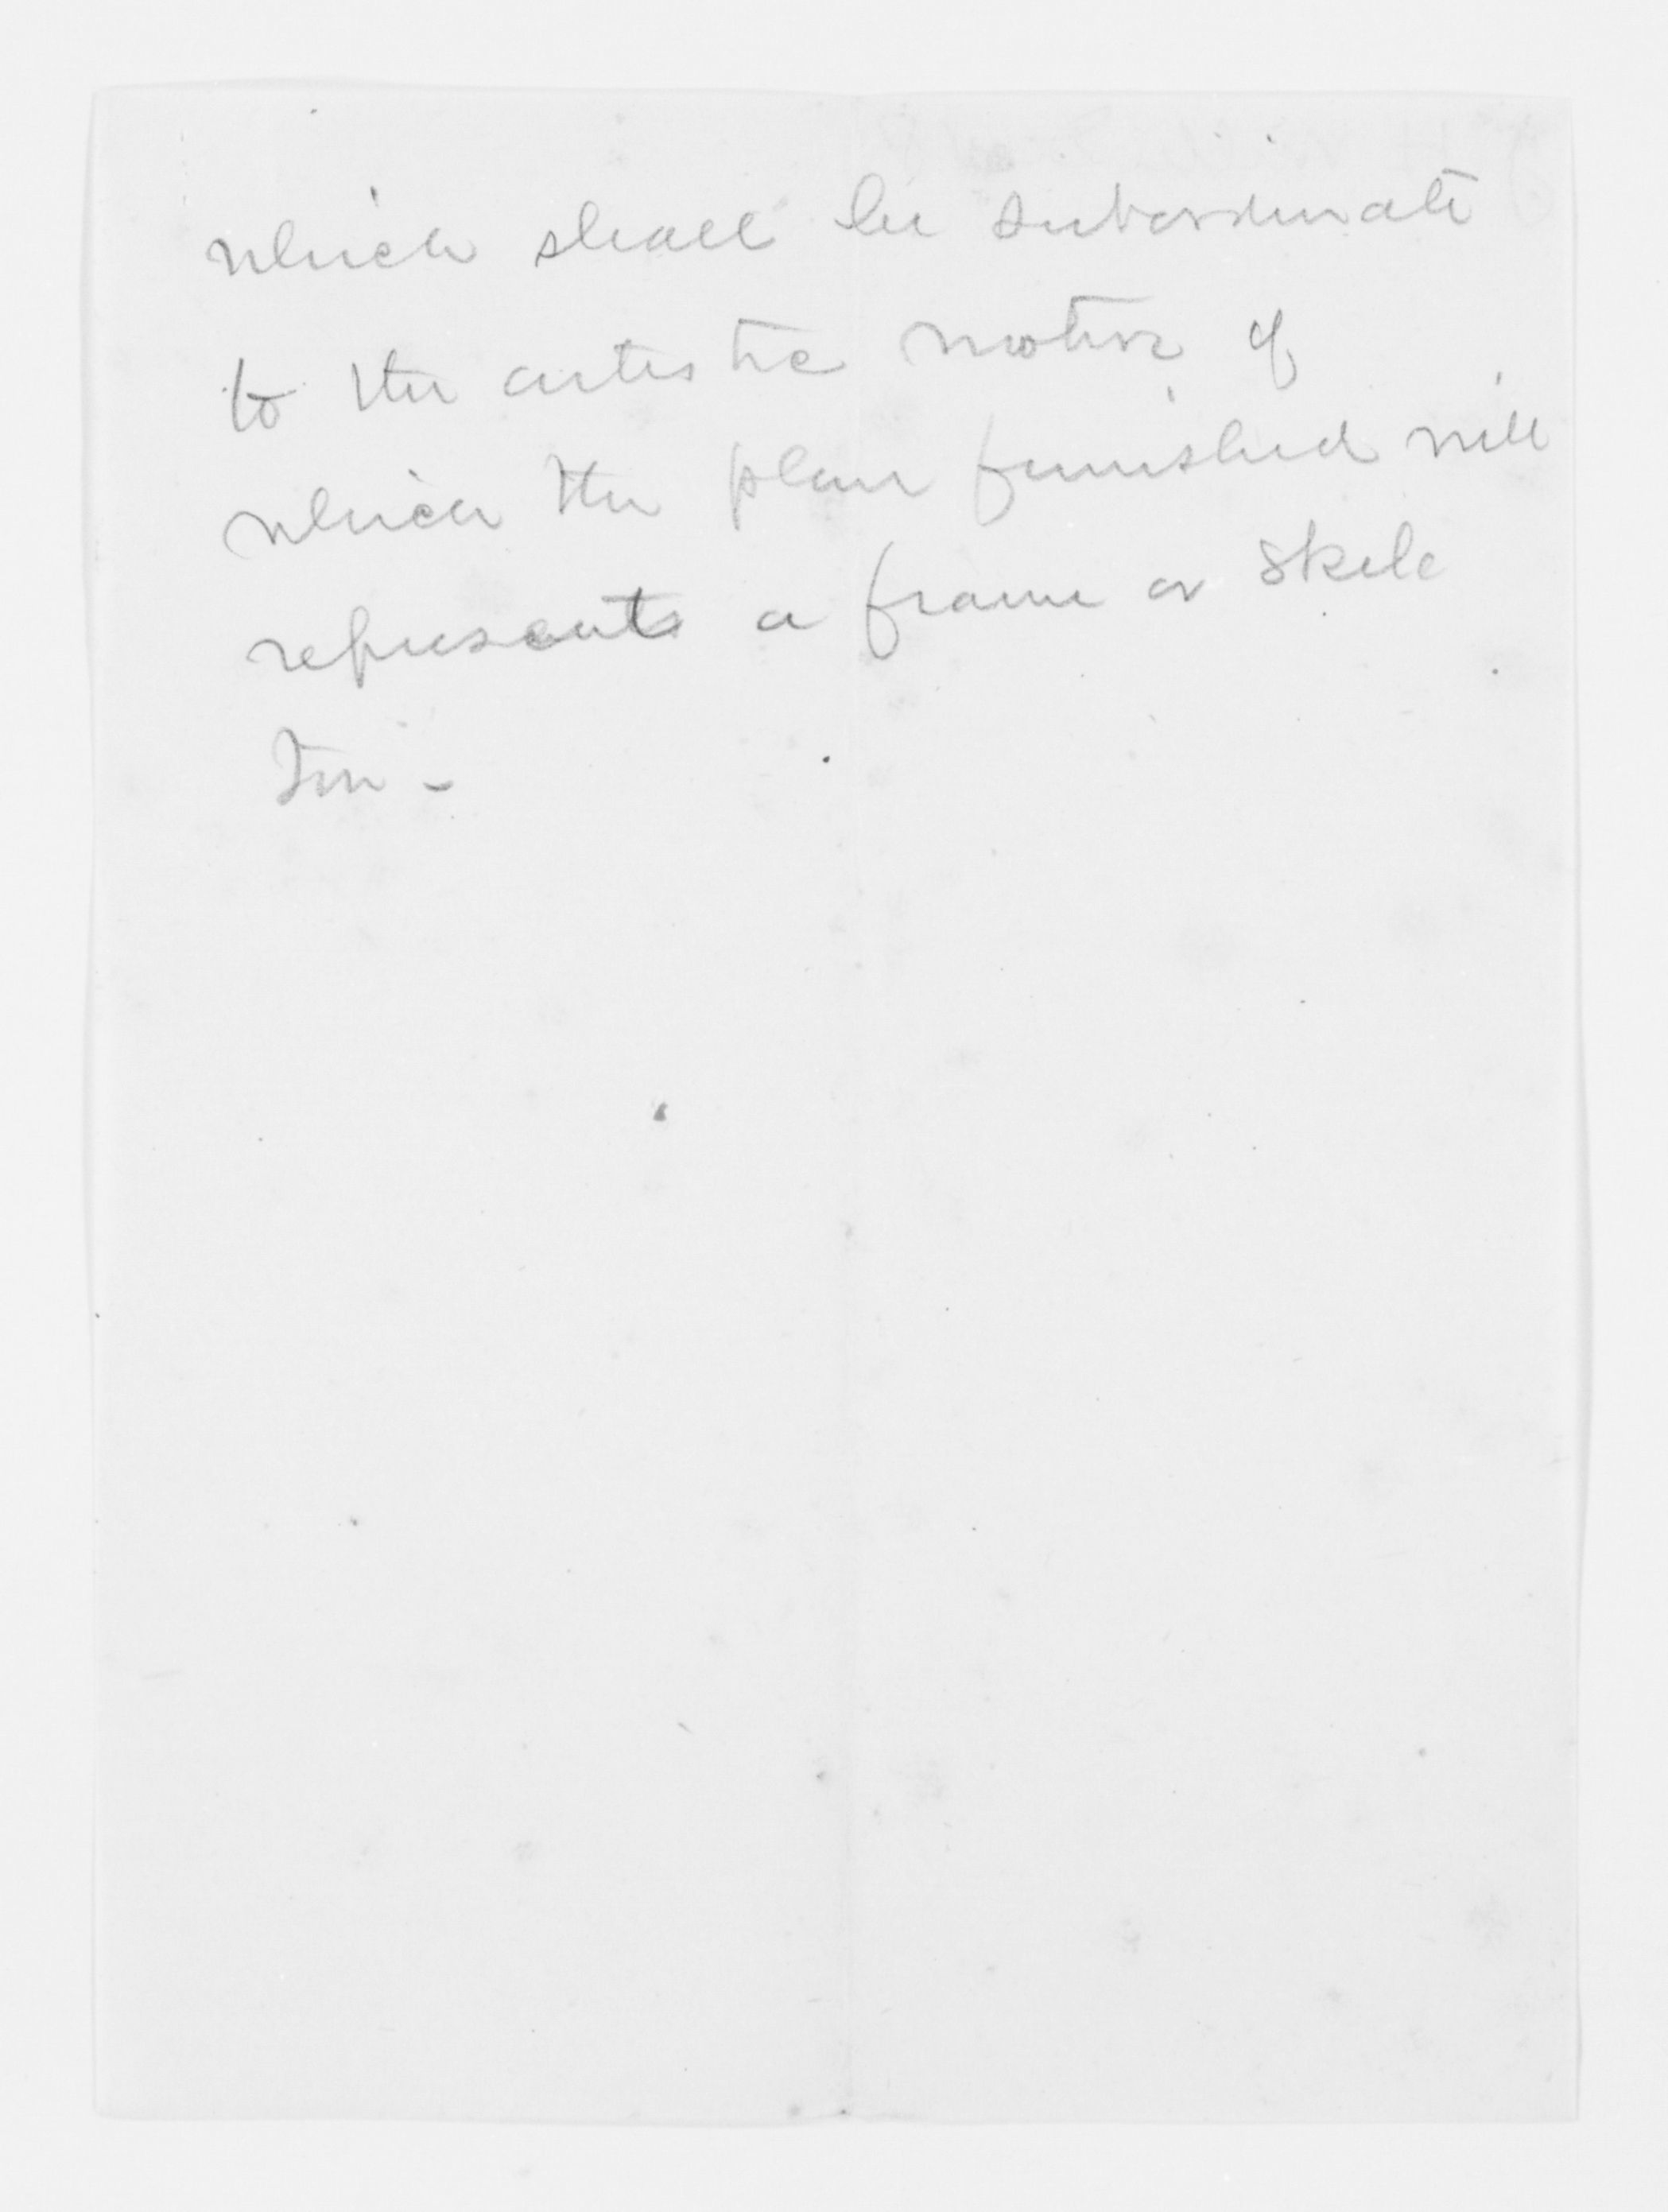 which shall be subordinate
to the artistic motive of
which the plan furnished will
represents a frame or skele
ton -